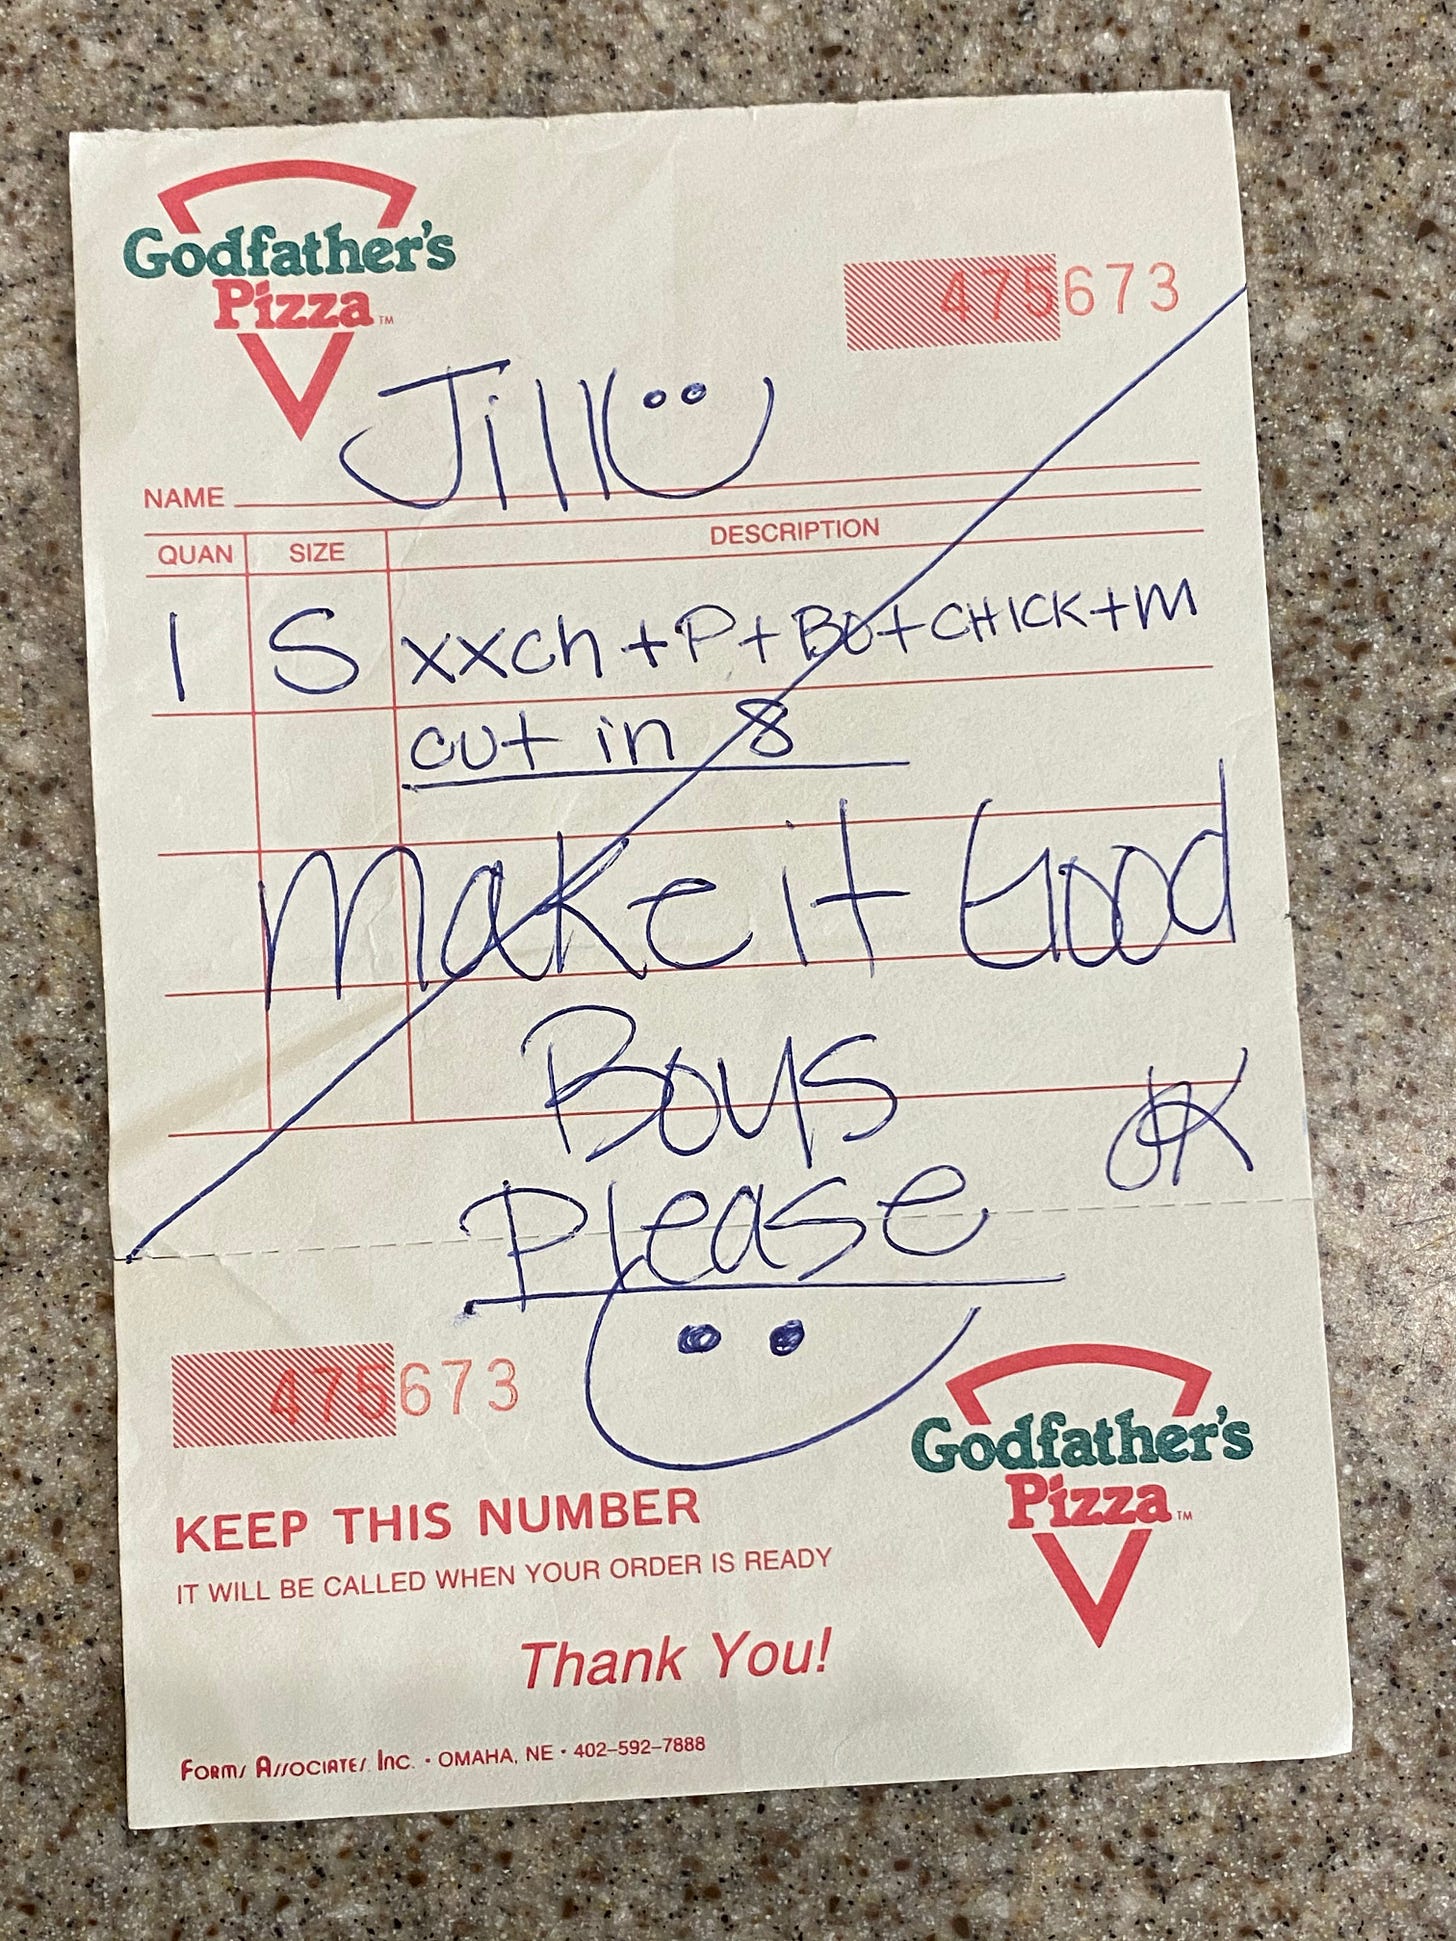 Godfather's
Pizza™
475673
Jill
NAME
QUAN SIZE DESCRIPTION
1 S xxch + P + BO + CHICK + m
cut in 8
Make it Good
Boys
OK
Please
475673
Godfather's
Pizza™
KEEP THIS NUMBER
IT WILL BE CALLED WHEN YOUR ORDER IS READY
Thank You!
FORMS ASSOCIATES, INC. • OMAHA, NE • 402-592-7888